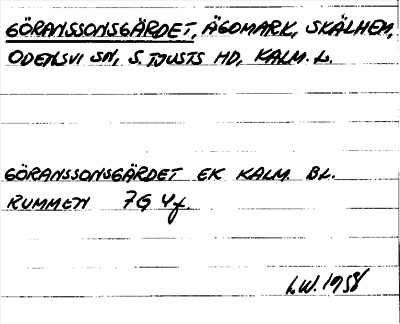 GÖRANSSONSGÄRDET, ÄGOMARK, SKÄLHEM,
ODENSVI SN, S. TJUSTS HD, KALM. L.
GÖRANSSONSGÄRDET EK KALM. BL.
RUMMEN 7G 4f.
L.W. 1958